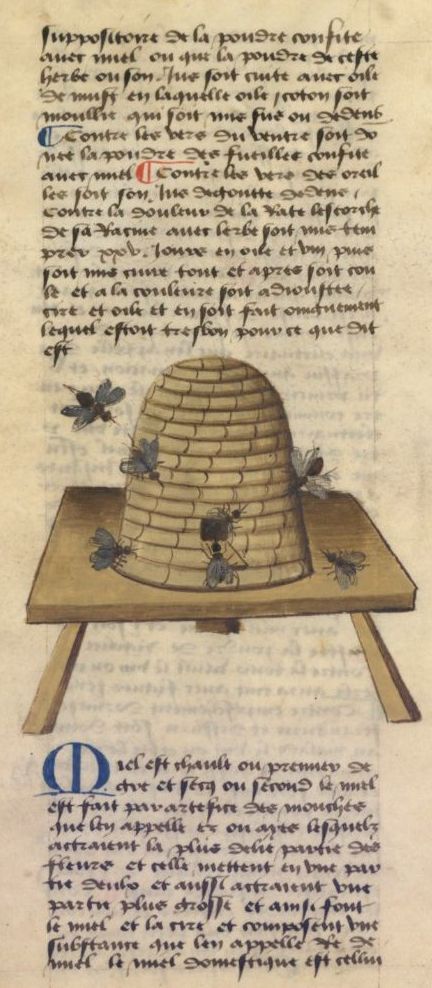 suppositoire de la poudre confite
avec miel ou que la poudre de ceste
herbe ou son Jus soit cuite avec oile
de must en laquelle oile coton soit
moullie qui soit mis sus ou dedens
Contre les vers du ventre soit do
nee la poudre des fueilles confite
avec miel Contre les vers des oreil
les soit son Jus degoutte dedens
Contre la douleur de la Rate lescorche
de sa Racine avec lerbe soit mis tem
prer xxv. Jours en oile et vin puis
soit mis cuire tout et apres soit cou
le et a la couleure soit adioustee
cire et oile et en soit fait oinguement
lequel estoit tresbon pour ce que dit
est
Miel est chault ou premier de
gre et secq ou second le miel
est fait par artefice des mouches
que len appelle ez ou ayes lesquelz
actraient la plus delie partie des
fleurs et celle mettent en une par
tie et aussi actraient une
partie plus grosse et ainsi font
le miel et la cire et composent une
substance que len appelle Re de
miel le miel domestique est cellui